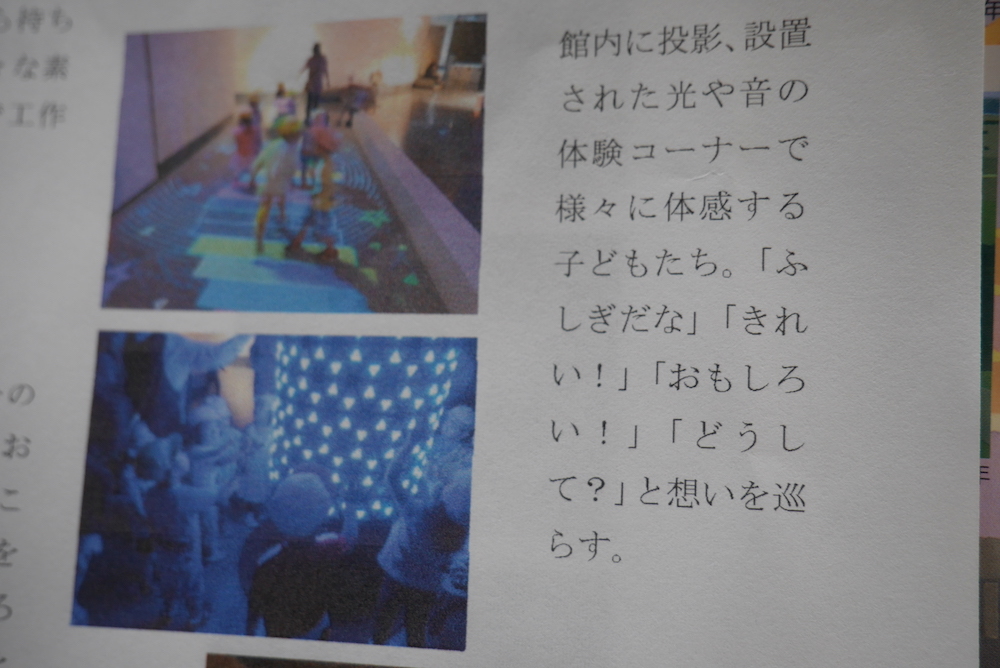 も持ち
な素
工作
の
お
こ
を
ろ
館内に投影、設置
された光や音の
体験コーナーで
様々に体感する
子どもたち。「ふ
しぎだな」「きれ
い！」「おもしろ
い！」「どうし
て？」と想いを巡
らす。
年